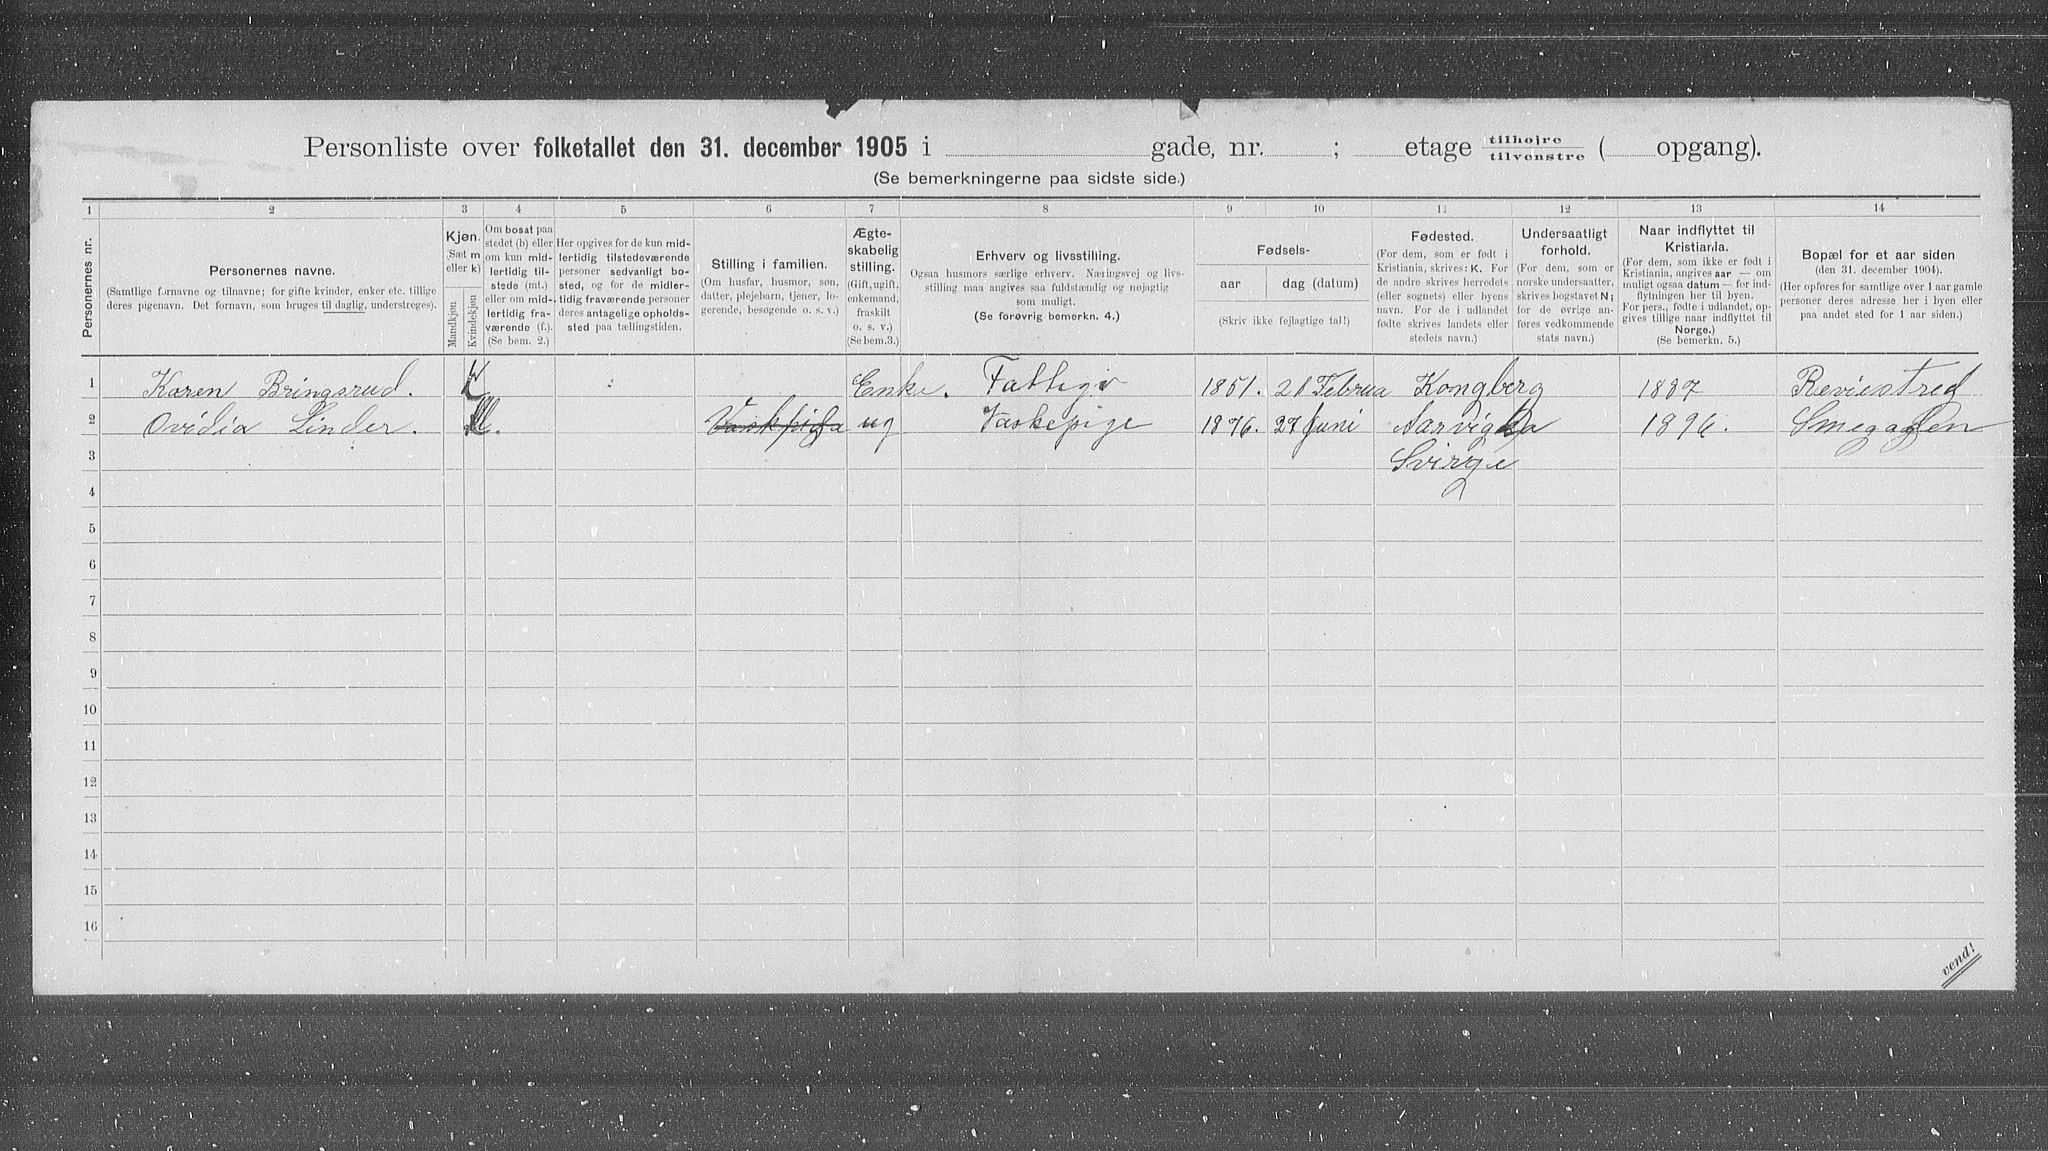 Personliste over folketallet den 31. december 1905 i gade, nr. ; etage tilhøjre tilvenstre ( opgang).
(Se bemerkningerne paa sidste side.)
1 2 3 4 5 6 7 8 9 10 11 12 13 14
Personernes nr.
Personernes navne.
(Samtlige fornavne og tilnavne; for gifte kvinder, enker etc. tillige
deres pigenavn. Det fornavn, som bruges til daglig, understreges).
Kjøn.
(Sæt m
eller k)
Mandkjøn
Kvindekjøn
Om bosat paa
stedet (b) eller
om kun mid-
lertidig til-
stede (mt.)
eller om mid-
lertidig fra-
værende (f.).
(Se bem. 2.)
Her opgives for de kun mid-
lertidig tilstedeværende
personer sedvanlig bo-
sted, og for de midler-
tidig fraværende personer
deres antagelige opholds-
sted paa tællingstiden.
Stilling i familien.
(Om husfar, husmor, søn,
datter, plejebarn, tjener, lo-
gerende, besøgende o. s. v.)
Ægte-
skabelig
stilling.
(Gift, ugift,
enkemand,
fraskilt
o. s. v.)
(Se bem.3.)
Erhverv og livsstilling.
Ogsaa husmors særlige erhverv. Næringsvej og livs-
stilling maa angives saa fuldstændig og nøjagtig
som muligt.
(Se forøvrig bemerkn. 4.)
Fødsels-
aar dag (datum)
(Skriv ikke fejlagtige tal!)
Fødested.
(For dem, som er født i
Kristiania, skrives: K. For
de andre skrives herredets
(eller sognets) eller byens
navn. For de i udlandet
fødte skrives landets eller
stedets navn.)
Undersaatligt
forhold.
(For dem, som er
norske undersaatter,
skrives bogstavet N;
for de øvrige an-
føres vedkommende
stats navn.)
Naar indflyttet til
Kristiania.
(For dem, som ikke er født i
Kristiania, angives aar — om
muligt ogsaa datum — for ind-
flytningen her til byen.
For pers., fødte i udlandet, op-
gives tillige naar indflyttet til
Norge.)
(Se bemerkn. 5.)
Bopæl for et aar siden
(den 31. december 1904).
(Her opføres for samtlige over 1 aar gamle
personer deres adresse her i byen eller
paa andet sted for 1 aar siden.)
1 Karen Bringsrud. Enke. Fattigv 1851. 21 Februa Kongberg 1887 Reviestred
2 Ovidia Linder. Vaskpiga ug Vaskepige 1876. 27 Juni Aarvigka 1896. Smegaden
3 Svirge
4
5
6
7
8
9
10
11
12
13
14
15
16
vend!